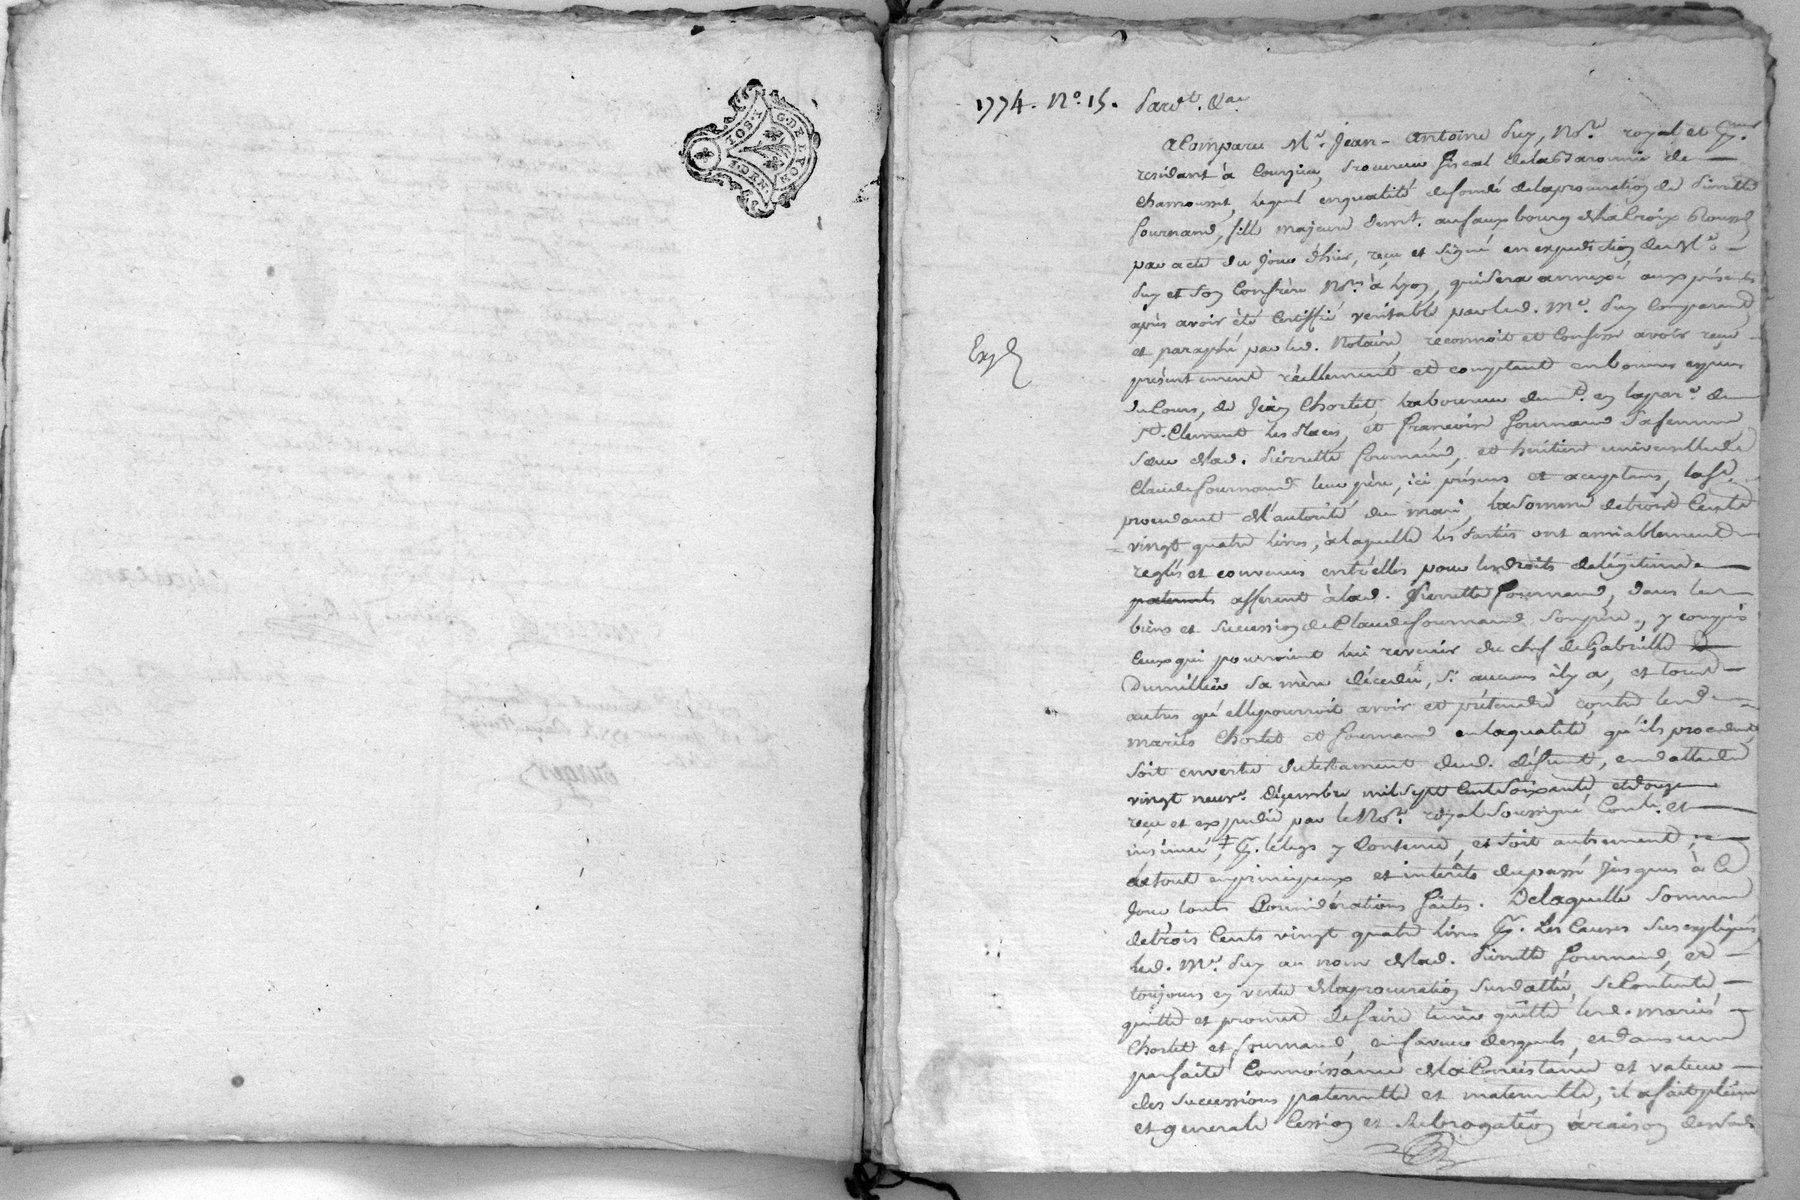 G. DE LYON
1774. N.º 15. Pardt. &a.
A Comparu Mᵉ. Jean-Antoine Puy, Noʳᵉ. royal et
résidant à Courzieu, Procureur fiscal de la Baronnie de
Chamousset, lequel en qualité de fondé de la procuration de Pierrette
Fournand, fille majeure demt. au faux bourg de la Croix Rousse,
par acte du jour d'hier, reçu et signé en expedition de Mᵉ.
Puy et son Confrère Noʳᵉˢ. à Lyon, qui sera annexé aux présentes
après avoir été Certiffié veritable par led. Mᵉ. Puy Comparant
et paraphé par led. Notaire, reconnoit et Confesse avoir reçu
Exp.
présentement réellement et comptant en bonnes especes
du Cours, de Jean Chortet, laboureur demt. en la parˢᵉ. de
Sᵗ. Clement les Places, et Françoise Fournand sa femme
sœur de lad. Pierrette Fournand, et héritiere universelle de
Claude Fournand leur père, ici présens et acceptans, la fᵉ.
procedant de l'autorité du mari, la somme de trois Cents
vingt quatre livres, à laquelle les Parties ont amiablement
reglés et convenus entr'elles pour les droits de légitime
paternels afferent à lad. Pierrette Fournand, dans les
biens et succession de Claude Fournand son père, y compris
Ceux qui pourroient lui revenir du chef de Gabrielle
Dumillier sa mère décedée, si aucuns il y a, et tous
autres qu'elle pourroit avoir et prétendre contre lesd.
mariés Chortet et Fournand en la qualité qu'ils procedent,
soit en vertu du testament dud. défunt, en datte du
vingt neuf. décembre mil sept Cent soixante et douze
reçu et expedié par le Noʳᵉ. royal soussigné Contˡᵉ. et
insinué, legs y Contenu, et soit autrement;
de tout en principaux et intérêts du passé jusques à ce
jour touts Considérations faites. De laquelle somme
de trois Cents vingt quatre livres les Causes sus expliqués
led. Mᵉ. Puy au nom de lad. Pierrette Fournand, et
toujours en vertu de la procuration susdattée, se Contente
quitte et promet de faire tenir quitte lesd. mariés
Chortet et Fournand, en faveur desquels, et dans une
parfaite Connoissance de la Consistance et valeur
des successions paternelle et maternelle, il a fait pleine
et generale Cession et subrogation à raison desd.